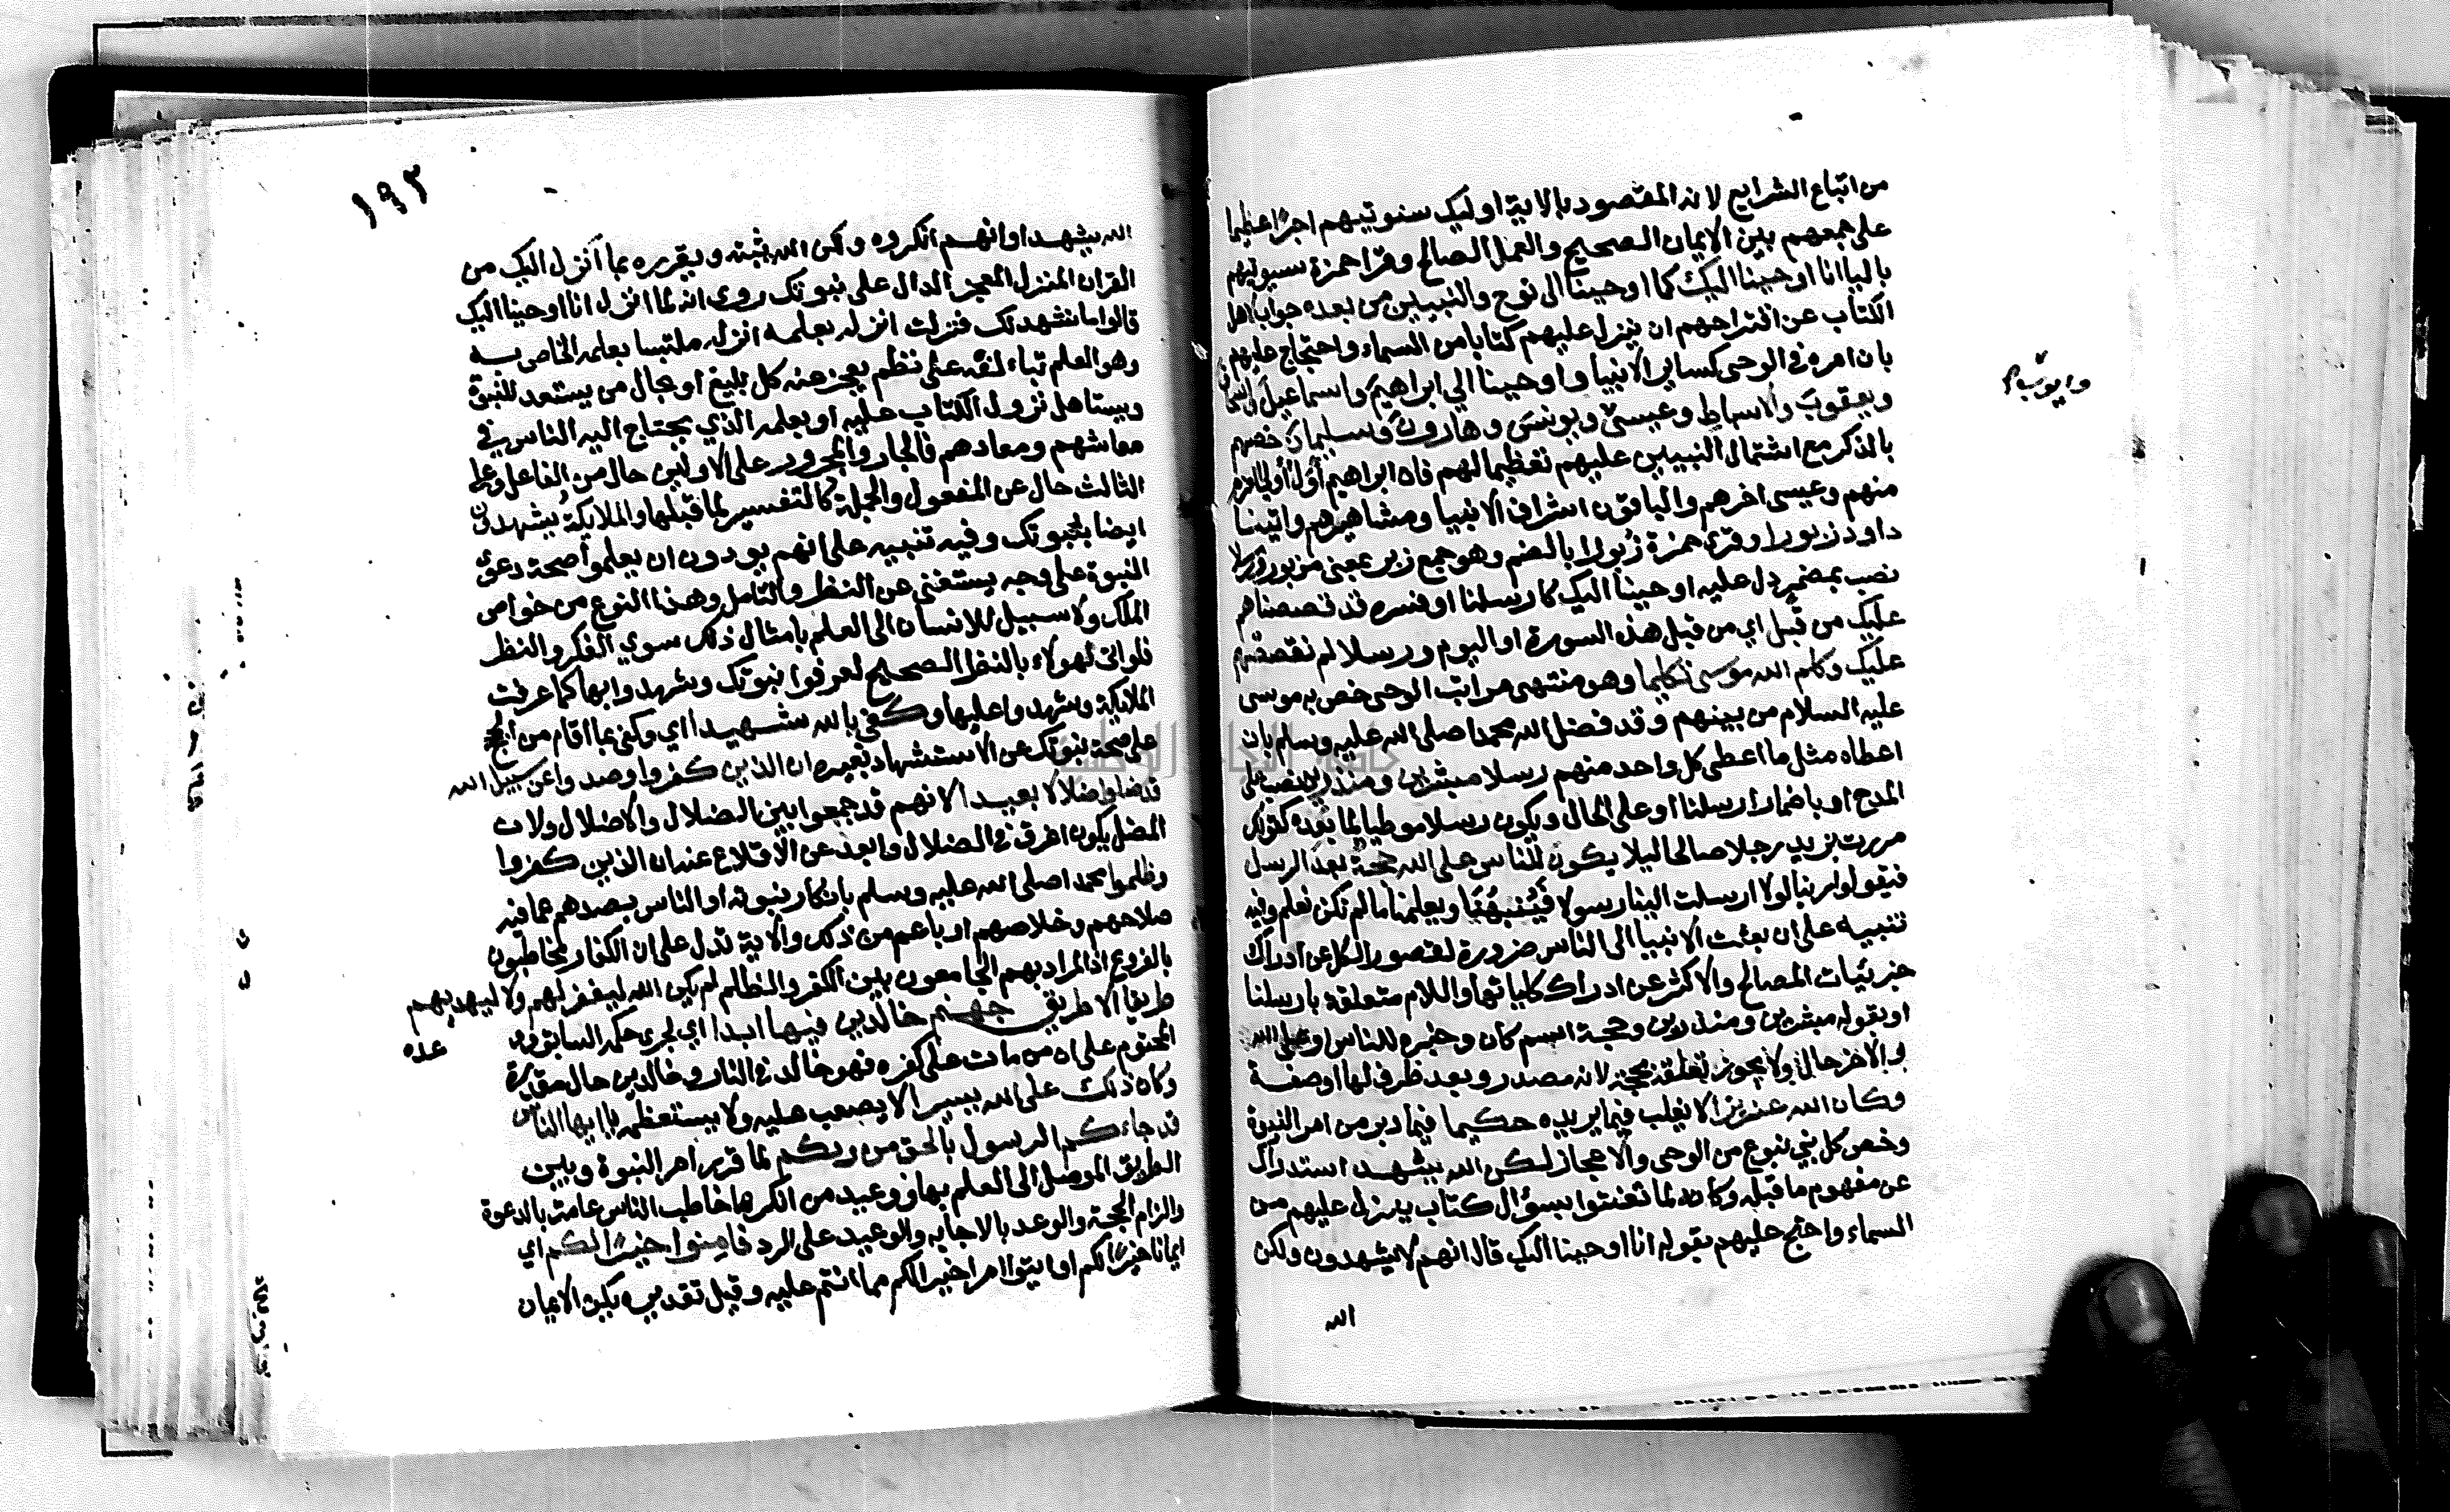 من اتباع الشرايع لانه المقصود بالاية اوليك سنوتيهم اجرا عظيما
على جمعهم بين الايمان الصحيح والعمل الصالح وقرا حمزة سيوتيهم
باليا انا اوحينا اليك كما اوحينا الى نوح والنبيين من بعده جواب لاهل
الكتاب عن اقتراحهم ان ينزل عليهم كتابا من السماء واحتجاج عليهم
بان امره في الوحى كساير الانبيا واوحينا الي ابراهيم واسماعيل واسحاق
ويعقوب والاسباط وعيسى ويونس وهارون وسليمان خصهم
وايوب
بالذكر مع اشتمال النبيين عليهم تعظيما لهم فان ابراهيم اول اولي العزم
منهم وعيسى اخرهم والباقون اشراف الانبيا ومشاهيرهم واتينا
داود زبورا وقرى حمزة زبورا بالضم وهو جمع زبر بمعنى مزبور ورسلا
نصب بمضمر دل عليه اوحينا اليك كارسلنا او فسره قد قصصناهم
عليك من قبل اي من قبل هذه السورة او اليوم ورسلا لم نقصصهم
عليك وكلم الله موسى تكليما وهو منتهى مراتب الوحى خص به موسى
عليه السلام من بينهم وقد فضل الله محمدا صلى الله عليه وسلم بان
اعطاه مثل ما اعطى كل واحد منهم رسلا مبشرين ومنذرين نصب على
المدح او باضمار ارسلنا او على الحال ويكون رسلا موطيا لما بعده كقولك
مررت بزيد رجلا صالحا ليلا يكون للناس على الله حجة بعد الرسل
فيقولوا ربنا لولا ارسلت الينا رسولا فينبهنا ويعلمنا ما لم نكن نعلم وفيه
تنبيه على ان بعثت الانبيا الى الناس ضرورة لقصور الكل عن ادراك
جزئيات المصالح والاكثر عن ادراك كلياتها واللام متعلقة بارسلنا
او بقوله مبشرين ومنذرين وحجة اسم كان وخبره للناس او على الله
والاخر حال ولا يجوز تعلقه بحجة لانه مصدر وبعد ظرف لها او صفة
وكان الله عزيزا لا يغلب فيما يريده حكيما فيما دبر من امر النبوة
وخص كل نبي بنوع من الوحى والاعجاز لكن الله يشهد استدراك
عن مفهوم ما قبله وكانه لما تعنتوا بسؤال كتاب ينزل عليهم من
السماء واحتج عليهم بقوله انا اوحينا اليك قال انهم لا يشهدون ولكن
الله
١٩٢
الله يشهد او انهم انكروه ولكن الله يثبته ويقرره بما انزل اليك من
القران المنزل المعجز الدال على نبوتك روى انه لما انزل انا اوحينا اليك
قالوا ما نشهد لك فنزلت انزله بعلمه انزله ملتبسا بعلمه الخاص به
وهو العلم بتاءلفه على نظم يعجز عنه كل بليغ او بحال من يستعد للنبوة
ويستاهل نزول الكتاب عليه او بعلمه الذي يحتاج اليه الناس في
معاشهم ومعادهم فالجار والمجرور على الاولين حال من الفاعل وعلى
الثالث حال عن المفعول والجملة كالتفسير لما قبلها والملايكة يشهدون
ايضا بنبوتك وفيه تنبيه على انهم يودون ان يعلموا صحة دعوى
النبوة على وجه يستغنى عن النظر والتامل وهذا النوع من خواص
الملك ولا سبيل للانسان الى العلم بامثال ذلك سوي الفكر والنظر
فلو اتى لهولاء بالنظر الصحيح لعرفوا نبوتك وشهدوا بها كما عرفت
الملايكة وشهدوا عليها وكفى بالله شهيدا اي وكفى بما اقام من الحجج
على صحة نبوتك عن الاستشهاد بغيره ان الذين كفروا وصدوا عن سبيل الله
قد ضلوا ضلالا بعيدا لانهم قد جمعوا بين الضلال والاضلال ولان
المضل يكون اغرق في الضلال وابعد عن الاقلاع عنه ان الذين كفروا
وظلموا محمدا صلى الله عليه وسلم بانكار نبوته او الناس بصدهم عما فيه
صلاحهم وخلاصهم او باعم من ذلك والاية تدل على ان الكفار مخاطبون
بالفروع اذ المراد بهم الجامعون بين الكفر والظلم لم يكن الله ليغفر لهم ولا ليهديهم
طريقا الا طريق جهنم خالدين فيها ابدا اي لجرى حكمه السابق
المحتوم على ان من مات على كفره فهو خالد في النار وخالدين حال مقدرة
وكان ذلك على الله يسيرا لا يصعب عليه ولا يستعظمه يا ايها الناس
قد جاءكم الرسول بالحق من ربكم لما قرر امر النبوة وبين
الطريق الموصل الى العلم بها ووعيد من انكرها خاطب الناس عامة بالدعوة
والزام الحجة والوعد بالاجابه والوعيد على الرد فامنوا خيرا لكم اي
ايمانا خيرا لكم او ايتوا امرا خيرا لكم مما انتم عليه وقيل تقديره يكن الايمان